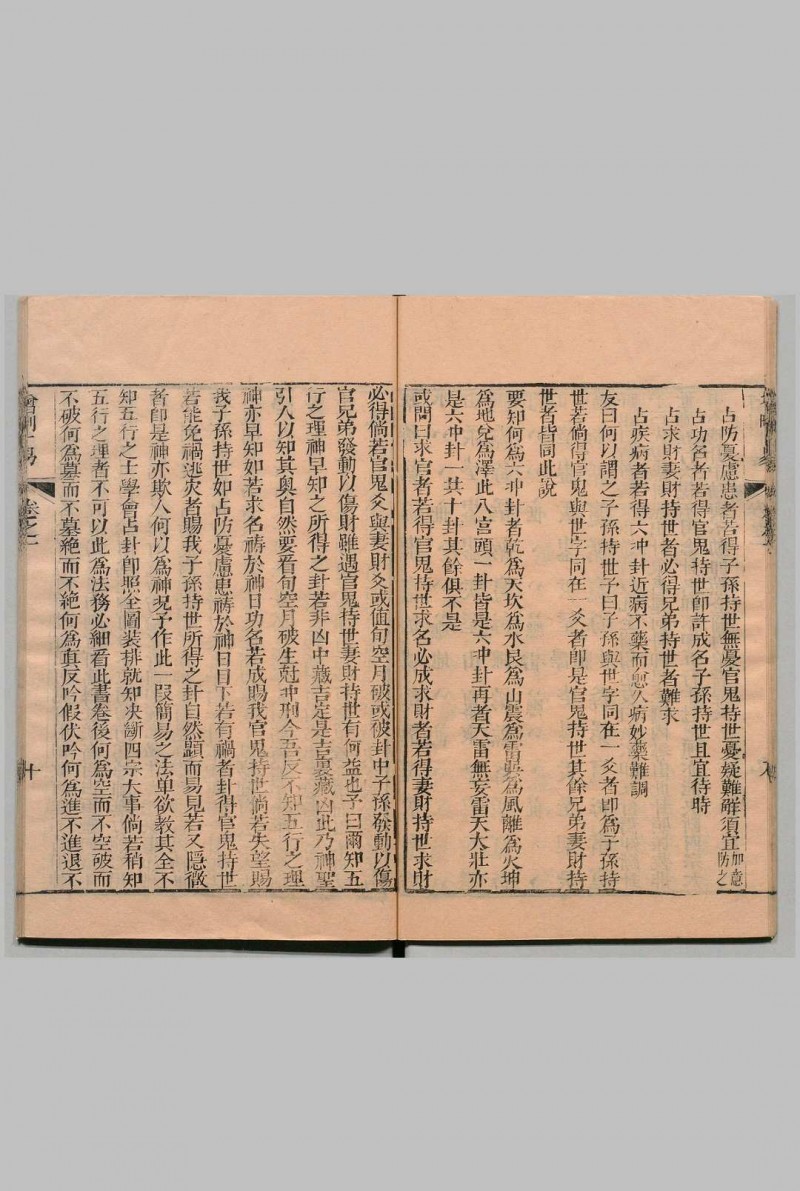 占防憂慮患者若得子孫持世無憂官鬼持世憂疑難解須宜加意防之
占功名者若得官鬼持世卽許成名子孫持世且宜待時
占求財妻財持世者必得兄弟持世者難求
占疾病者若得六冲卦近病不藥而愈久病妙藥難調
友曰何以謂之子孫持世予曰子孫與世字同在一爻者卽爲子孫持
世若倘得官鬼與世字同在一爻者卽是官鬼持世其餘兄弟妻財持
世者皆同此說
要知何爲六冲卦者乾爲天坎爲水艮爲山震爲雷巽爲風離爲火坤
爲地兌爲澤此八宮頭一卦皆是六冲卦再者天雷無妄雷天大壯亦
是六冲卦一共十卦其餘俱不是
或問曰求官者若得官鬼持世求名必成求財者若得妻財持世求財
必得倘若官鬼爻與妻財爻或值旬空月破或被卦中子孫發動以傷
官兄弟發動以傷財雖遇官鬼持世妻財持世有何益也予曰爾知五
行之理神早知之所得之卦若非凶中藏吉定是吉裏藏凶此乃神聖
引人以知其奧自然要看旬空月破生尅冲刑今吾反不知五行之理
神亦早知如若求名禱於神曰功名若成賜我官鬼持世倘若失望賜
我子孫持世如占防憂慮患禱於神曰目下若有禍者卦得官鬼持世
若能免禍逃灾者賜我子孫持世所得之卦自然顯而易見若又隱微
者卽是神亦欺人何以爲神現予作此一叚簡易之法单欲教其全不
知五行之士學會占卦卽照全圖裝排就知决斷四宗大事倘若稍知
五行之理者不可以此爲法務必細看此書卷後何爲空而不空破而
不破何爲墓而不墓絶而不絶何爲眞反吟假伏吟何爲進不進退不
卷之一
十